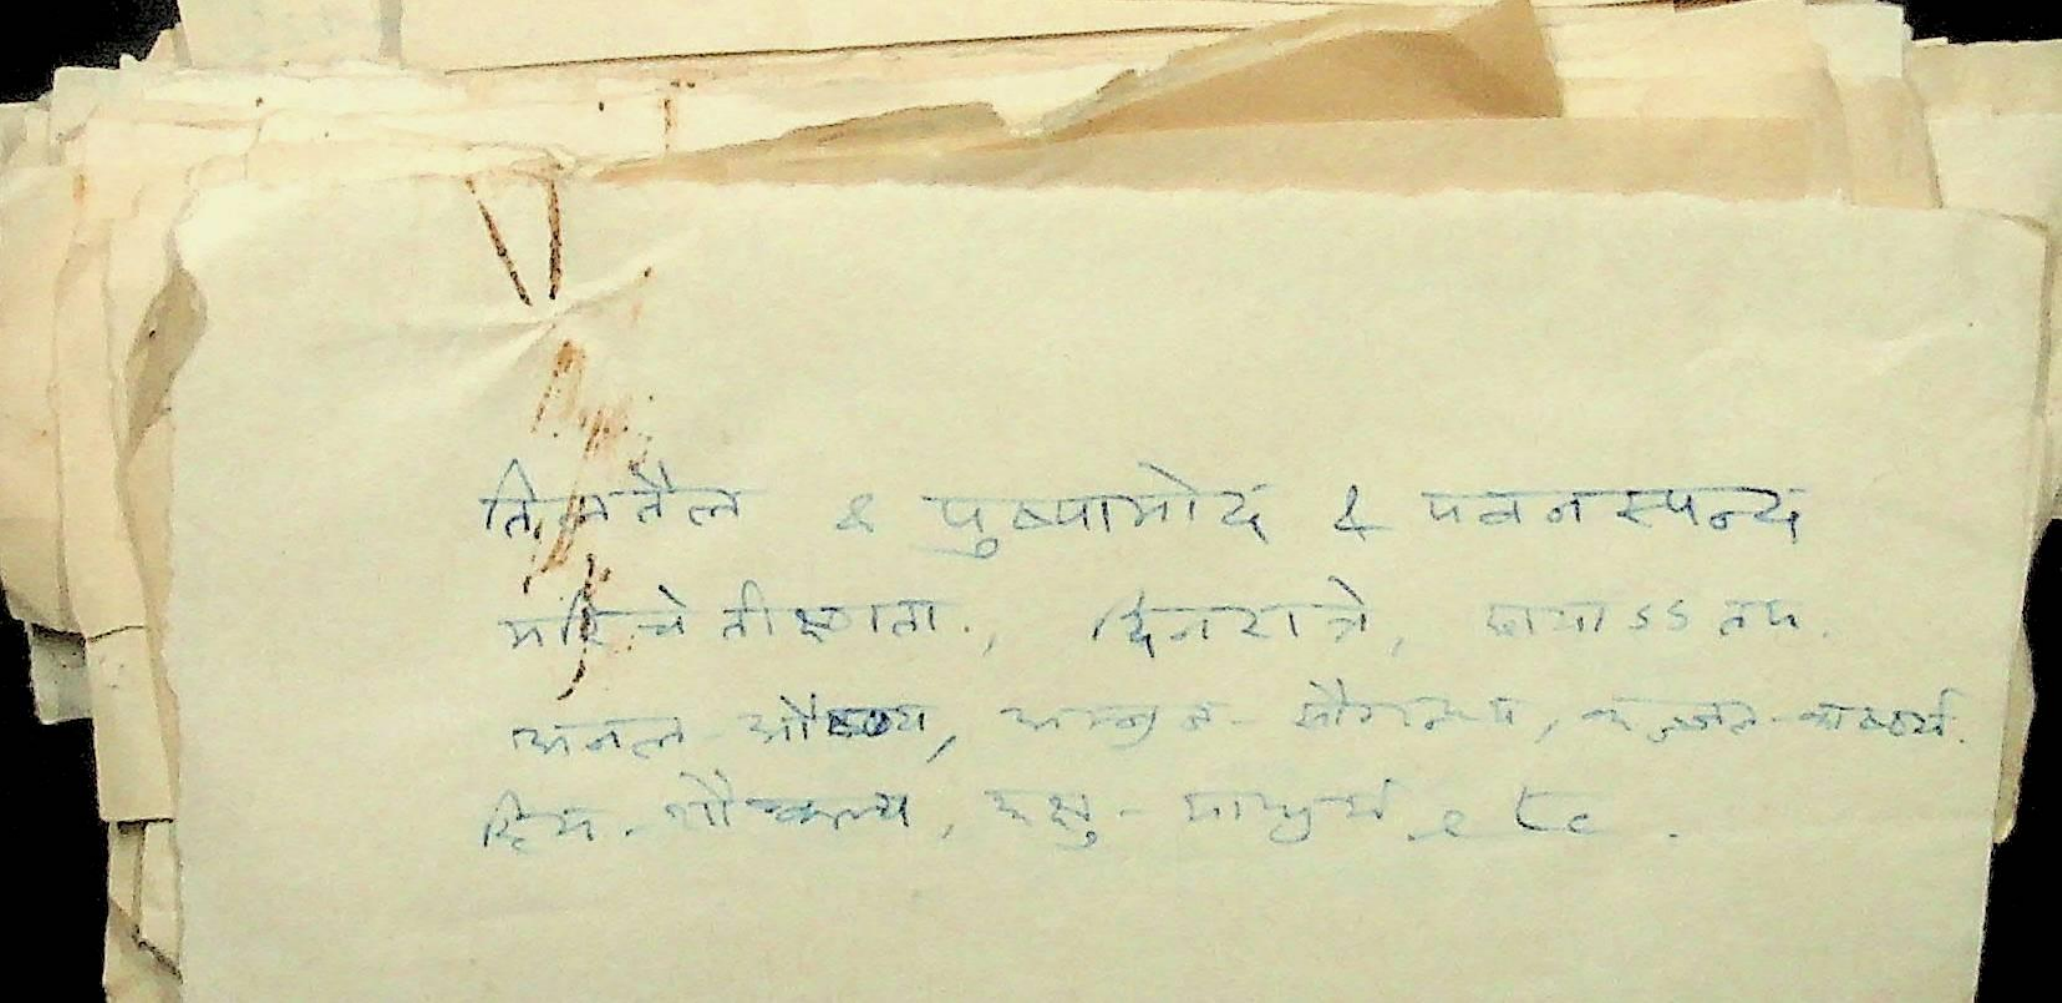 तिलतैल & पुष्पामोद & पवनस्पन्द
मरिचे तीक्ष्णता., दिनरात्रे, छायाऽऽतप.
अनल - औष्ण्य, - सौगन्ध्य, कज्जल - कार्ष्ण्य.
हिम - शौक्ल्य, इक्षु - माधुर्य etc.